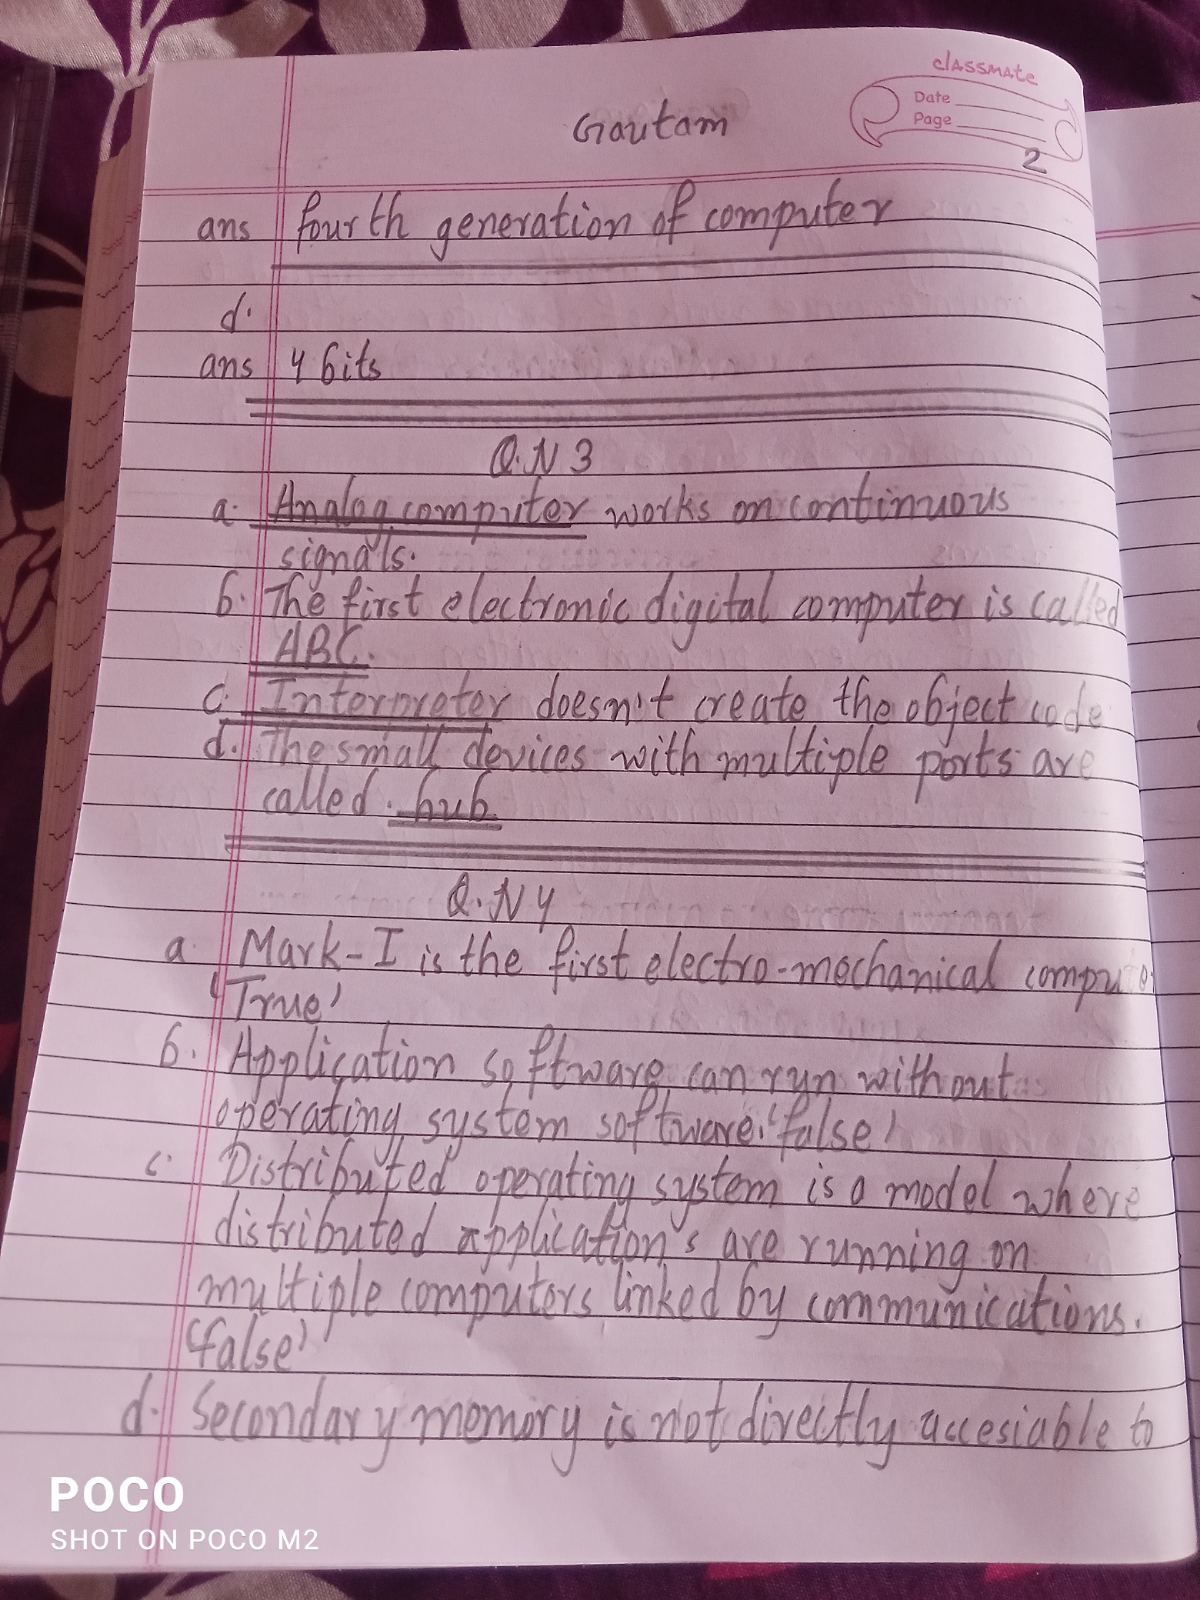 classmate
Date
Page
2
Gautam
ans fourth generation of computer
d.
ans 4 bits
Q.N 3
a. Analog computer works on continuous
signals.
b. The first electronic digital computer is called
ABC.
c. Interpreter doesn't create the object code
d. The small devices with multiple ports are
called. hub
Q.N 4
a. Mark-I is the first electro-mechanical compute
'True'
b. Application software can run without
operating system software. 'false'
c. Distributed operating system is a model where
distributed application's are running on
multiple computers linked by communications.
'false'
d. Secondary memory is not directly accesiable to
POCO
SHOT ON POCO M2